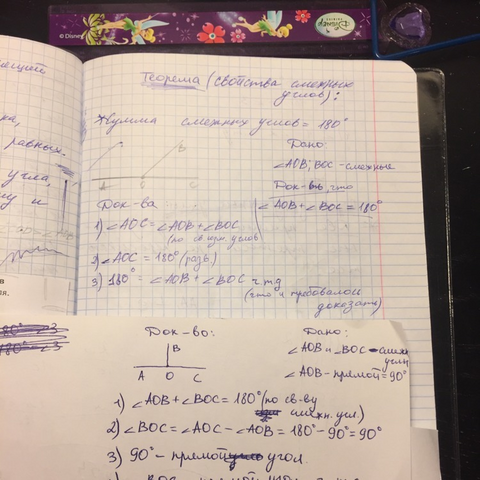 © Disney
Disney
Теорема (свойства смежных
углов):
Сумма смежных углов = 180°
ка,
равных.
угла,
у и
A O C
B
Дано:
∠AOB; BOC - смежные
Док-ть, что
∠AOB + ∠BOC = 180°
Док-ва
1) ∠AOC = ∠AOB + ∠BOC
(по св. изм. углов
2) ∠AOC = 180° (разв.)
3) 180° = ∠AOB + ∠BOC ч т д
(что и требовалось
доказать)
Док-во:
B
A O C
Дано:
∠AOB и ∠BOC - смежн
углы
∠AOB - прямой = 90°
1) ∠AOB + ∠BOC = 180° (по св-ву
смежн. угл.)
2) ∠BOC = ∠AOC - ∠AOB = 180° - 90° = 90°
3) 90° - прямой угол.